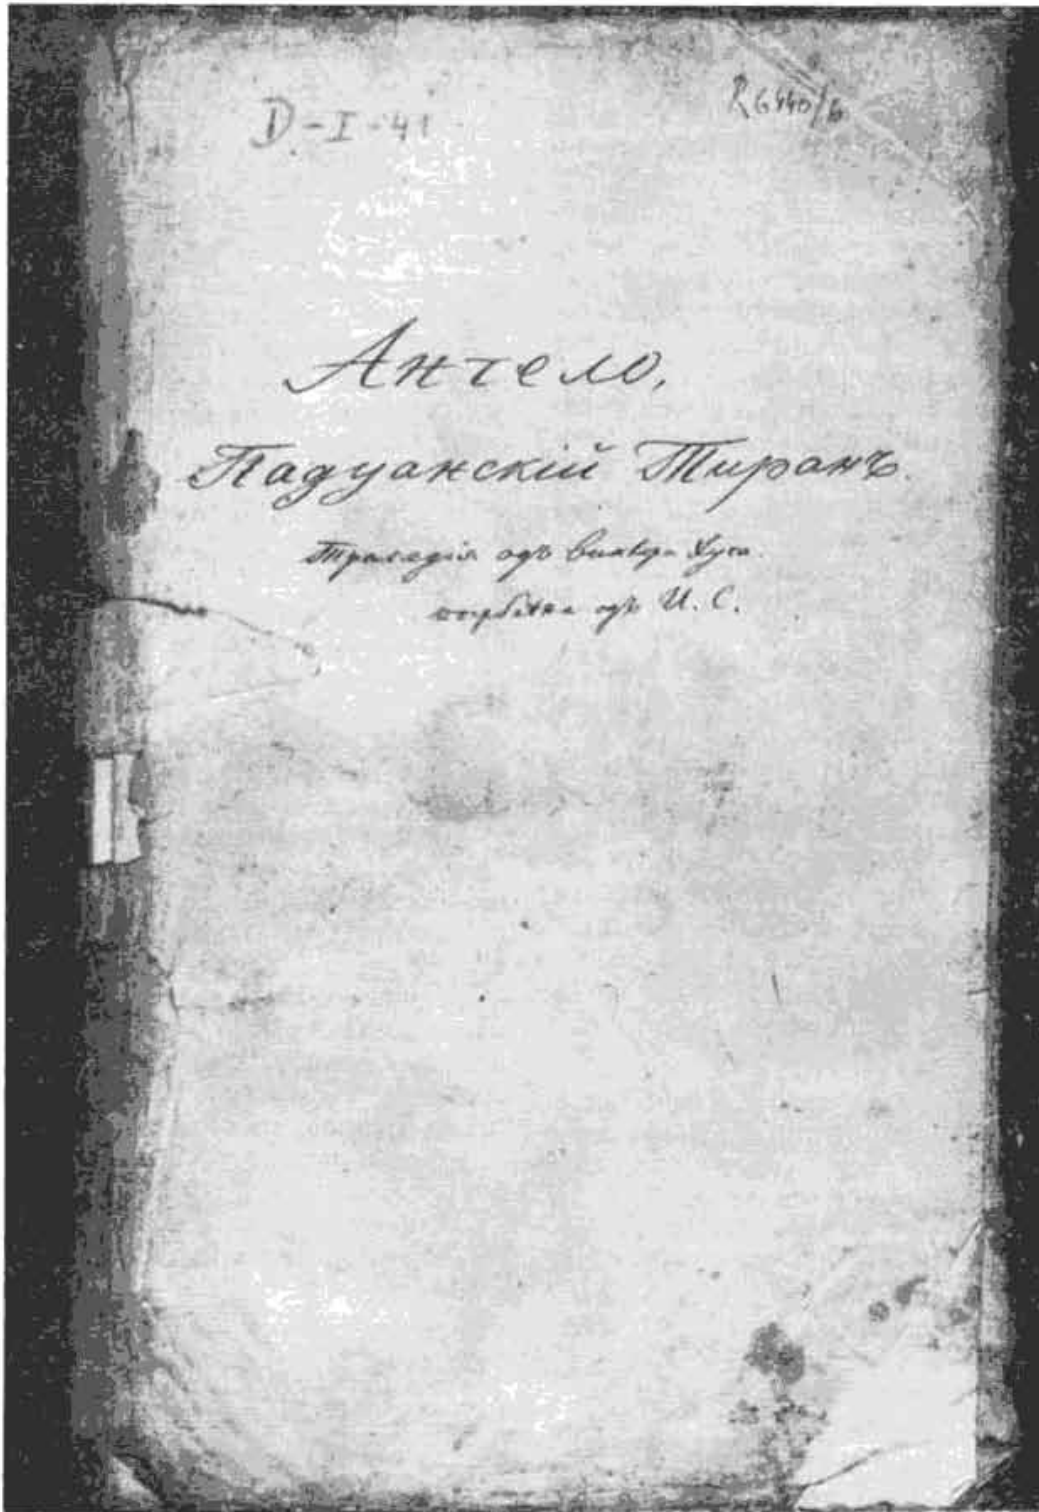 D-I-41
R6440/b
Ангело,
Падуанскій Тиранъ.
Трагедія одъ Виктора Хуга.
одъ И. С.